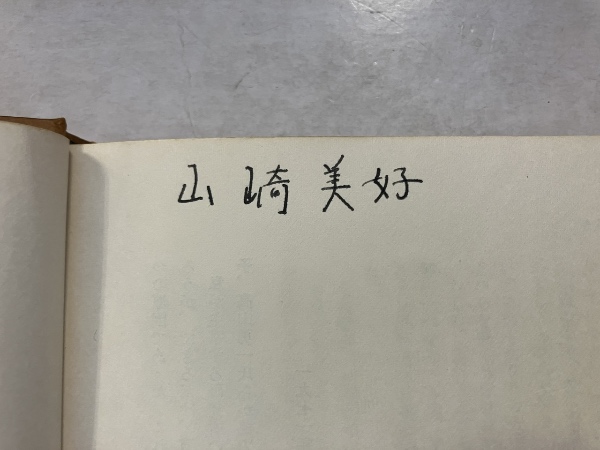 山崎美好